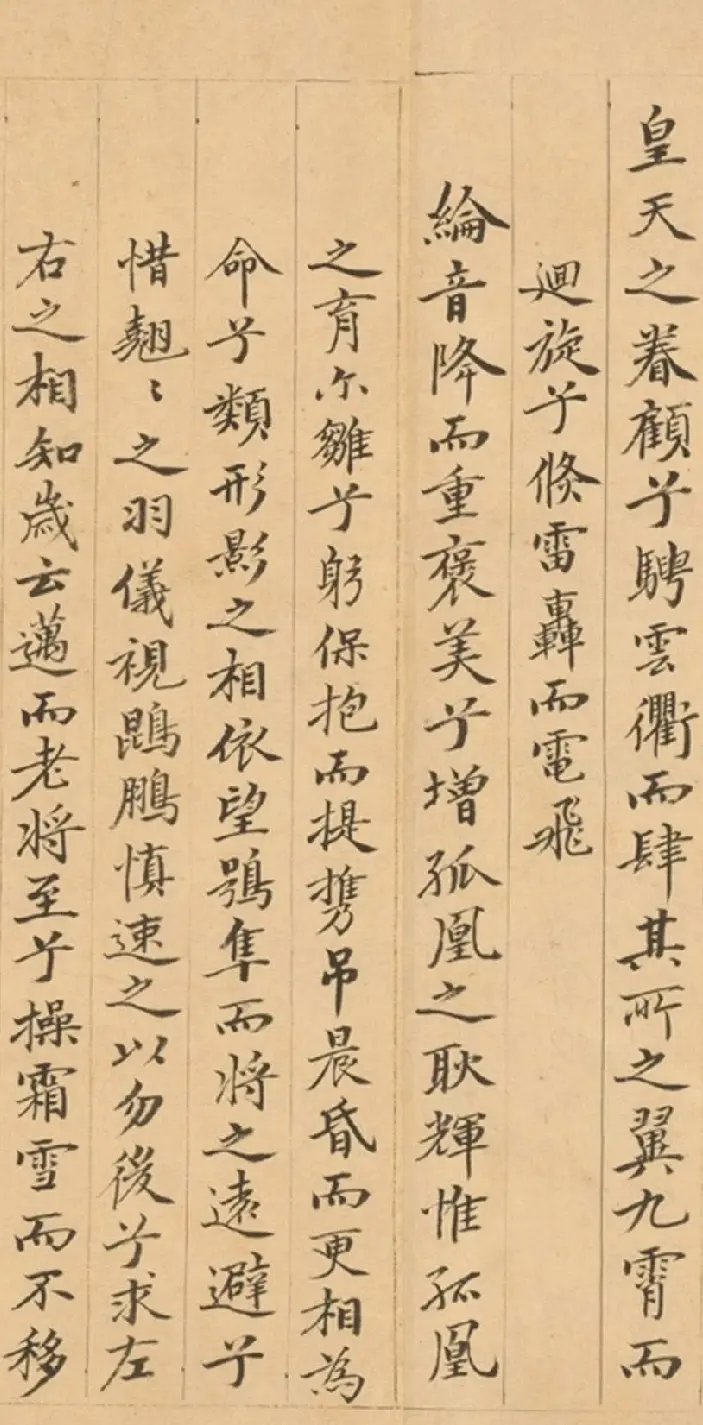 皇天之眷顧兮騁雲衢而肆其所之翼九霄而
迴旋兮倐雷轟而電飛
綸音降而重褒美兮增孤凰之耿輝惟孤凰
之育尓雛兮躬保抱而提携弔晨昏而更相為
命兮類形影之相依望鶚隼而将之遠避兮
惜翹〻之羽儀視鵾鵬慎速之以勿後兮求左
右之相知歳云邁而老将至兮操霜雪而不移